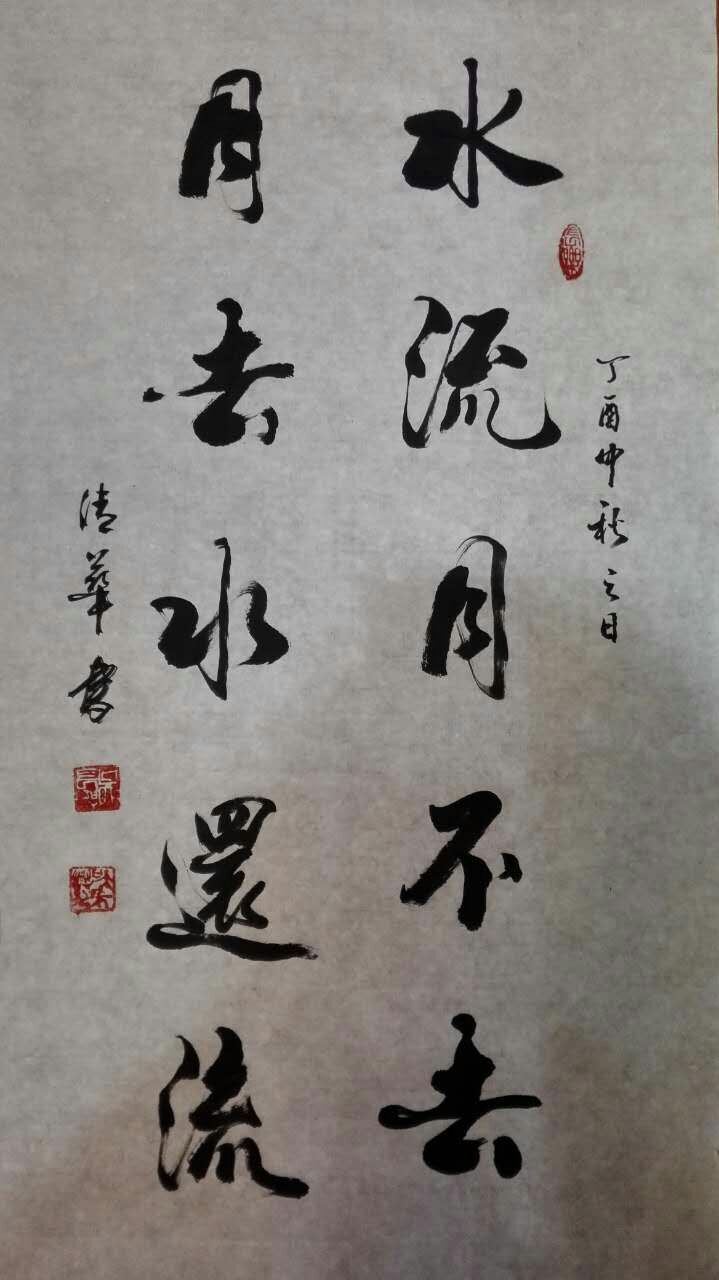 丁酉中秋之日
水流月不去
月去水還流
清華書